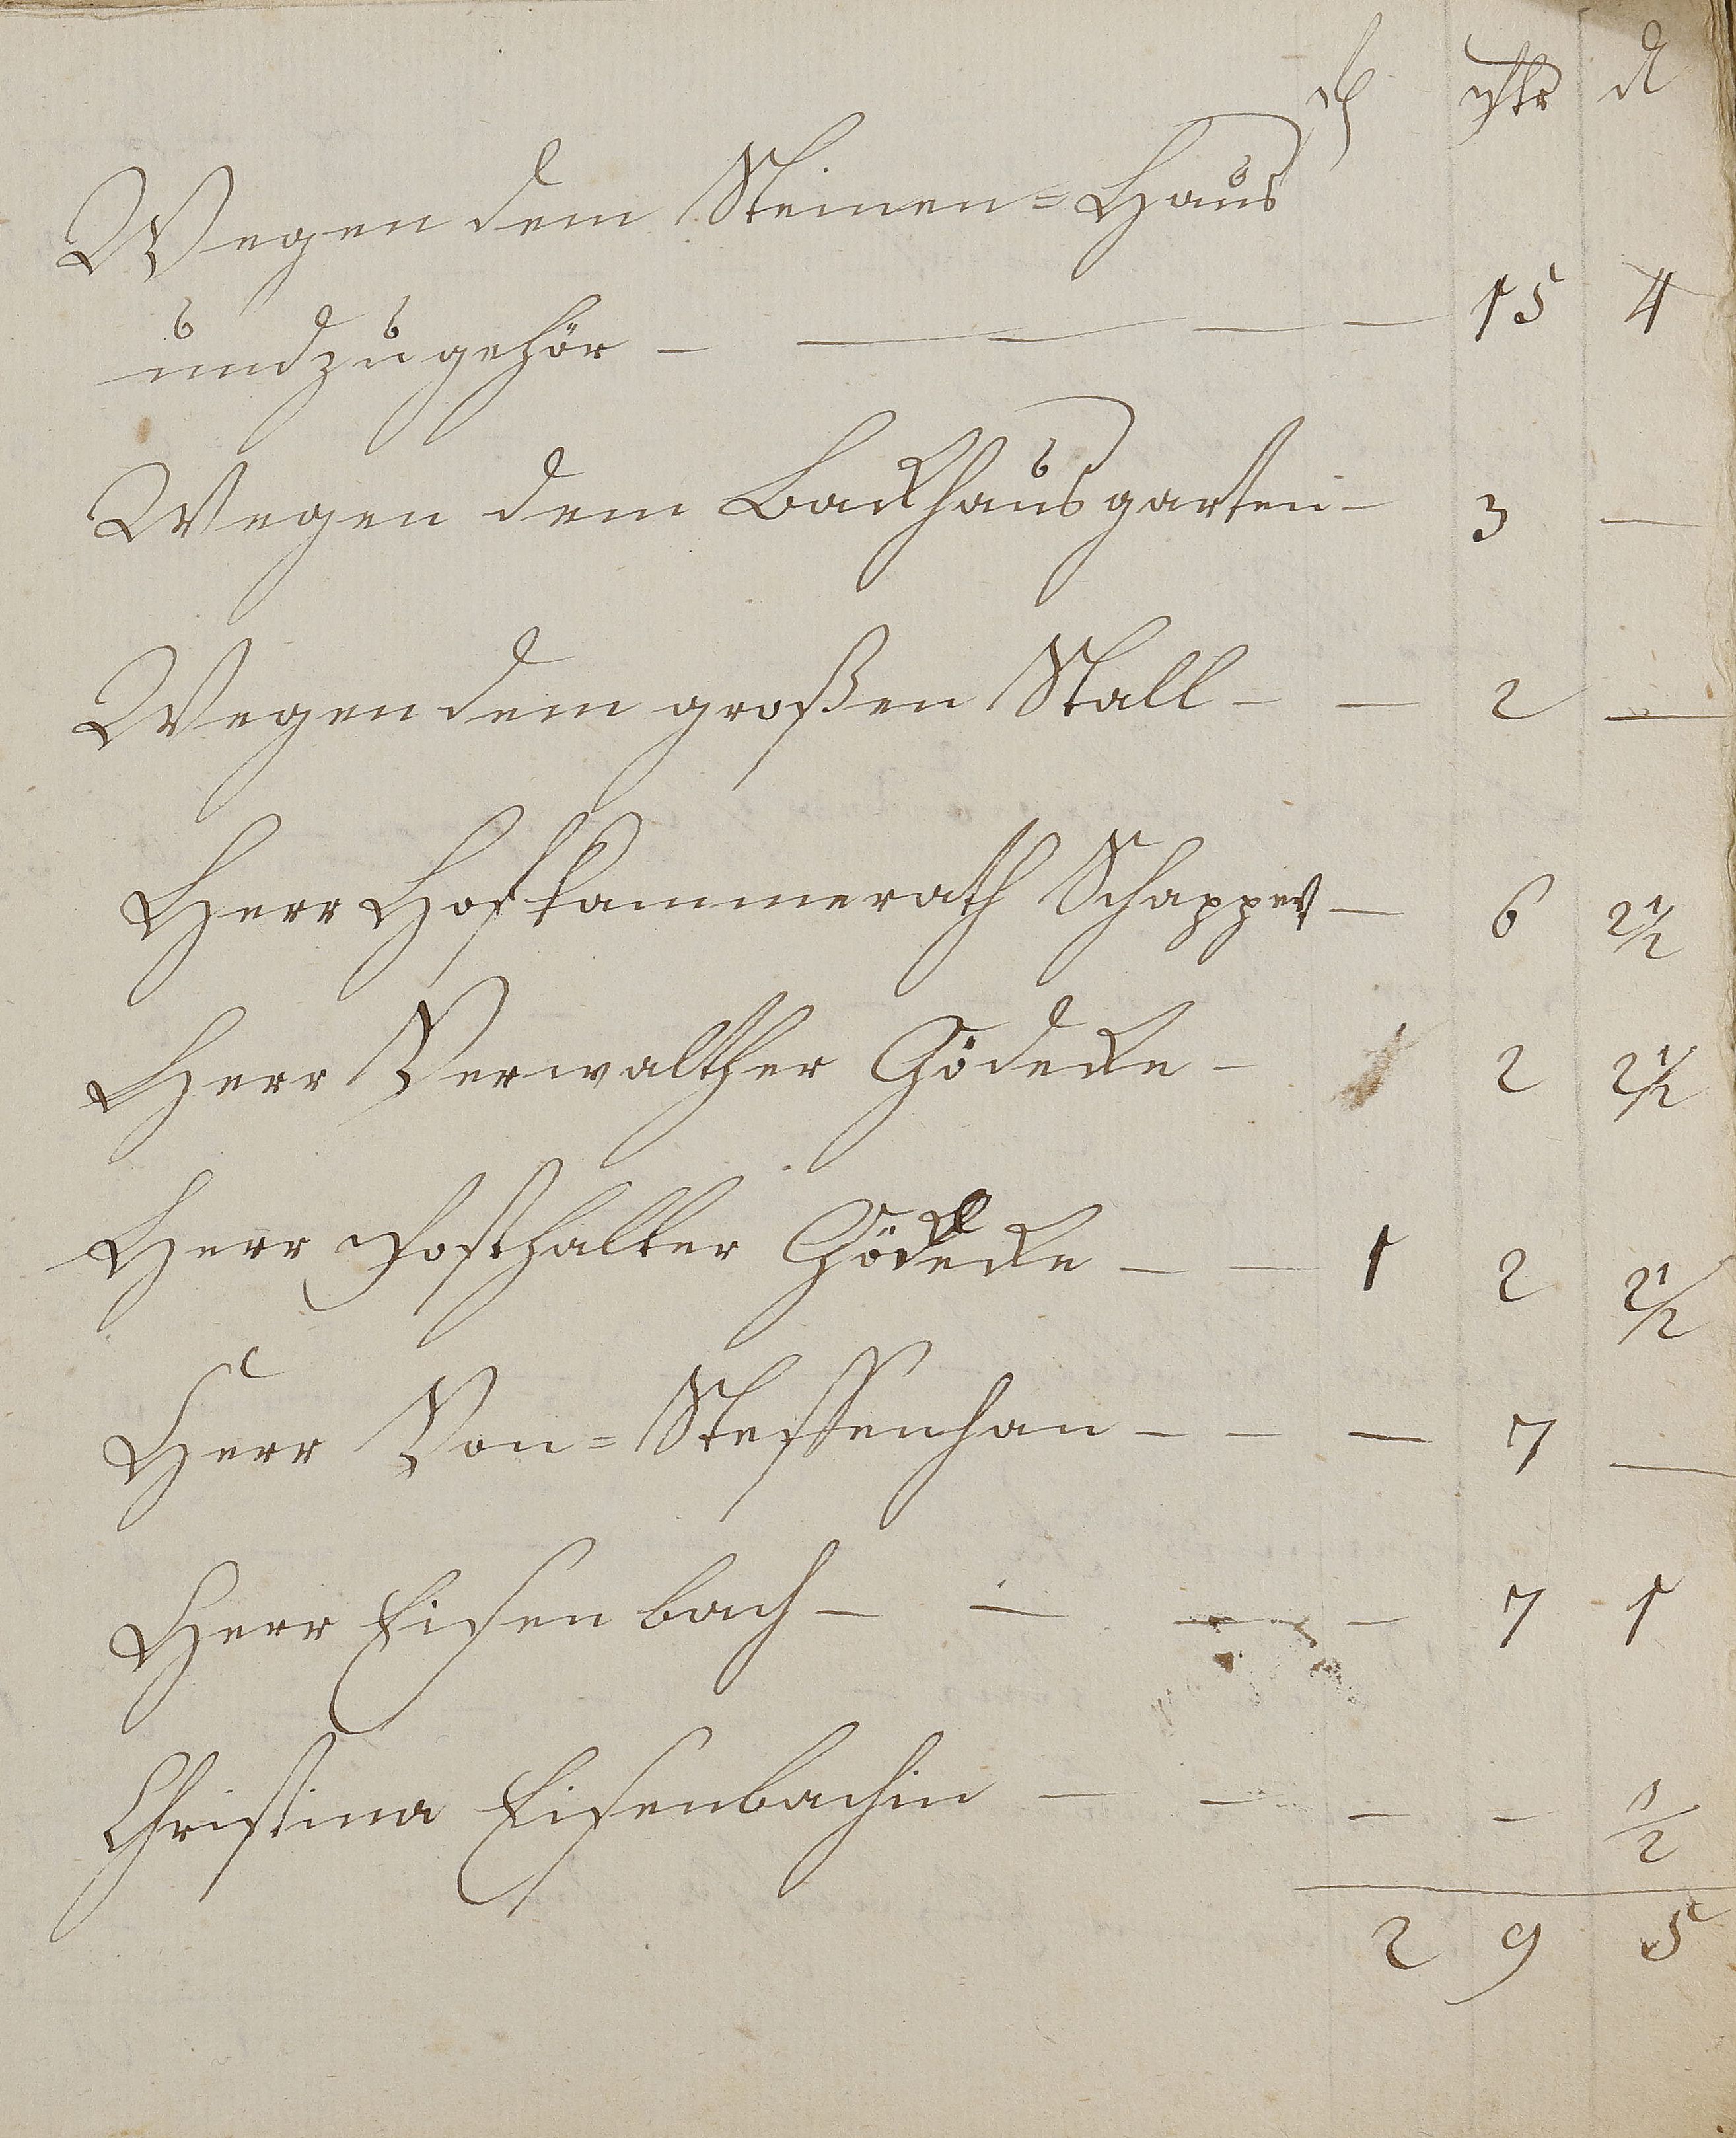 rh ystr d
Wegen dem Steinen=Haus
undzugehör — — — — — 15 4
Wegen dem Backhausgarten — 3 —
Wegen dem großen Stall — — 2 —
Herr Hofkammerath Schapper — 6 2 1/2
Herr Verwalther Gödecke — 2 2 1/2
Herr Posthalter Gödecke — — 1 2 2 1/2
Herr Von=Steffenhan — — — 7 —
Herr Eisenbach — — — — 7 1
Christina Eisenbachin — — — — 1/2
2 9 5